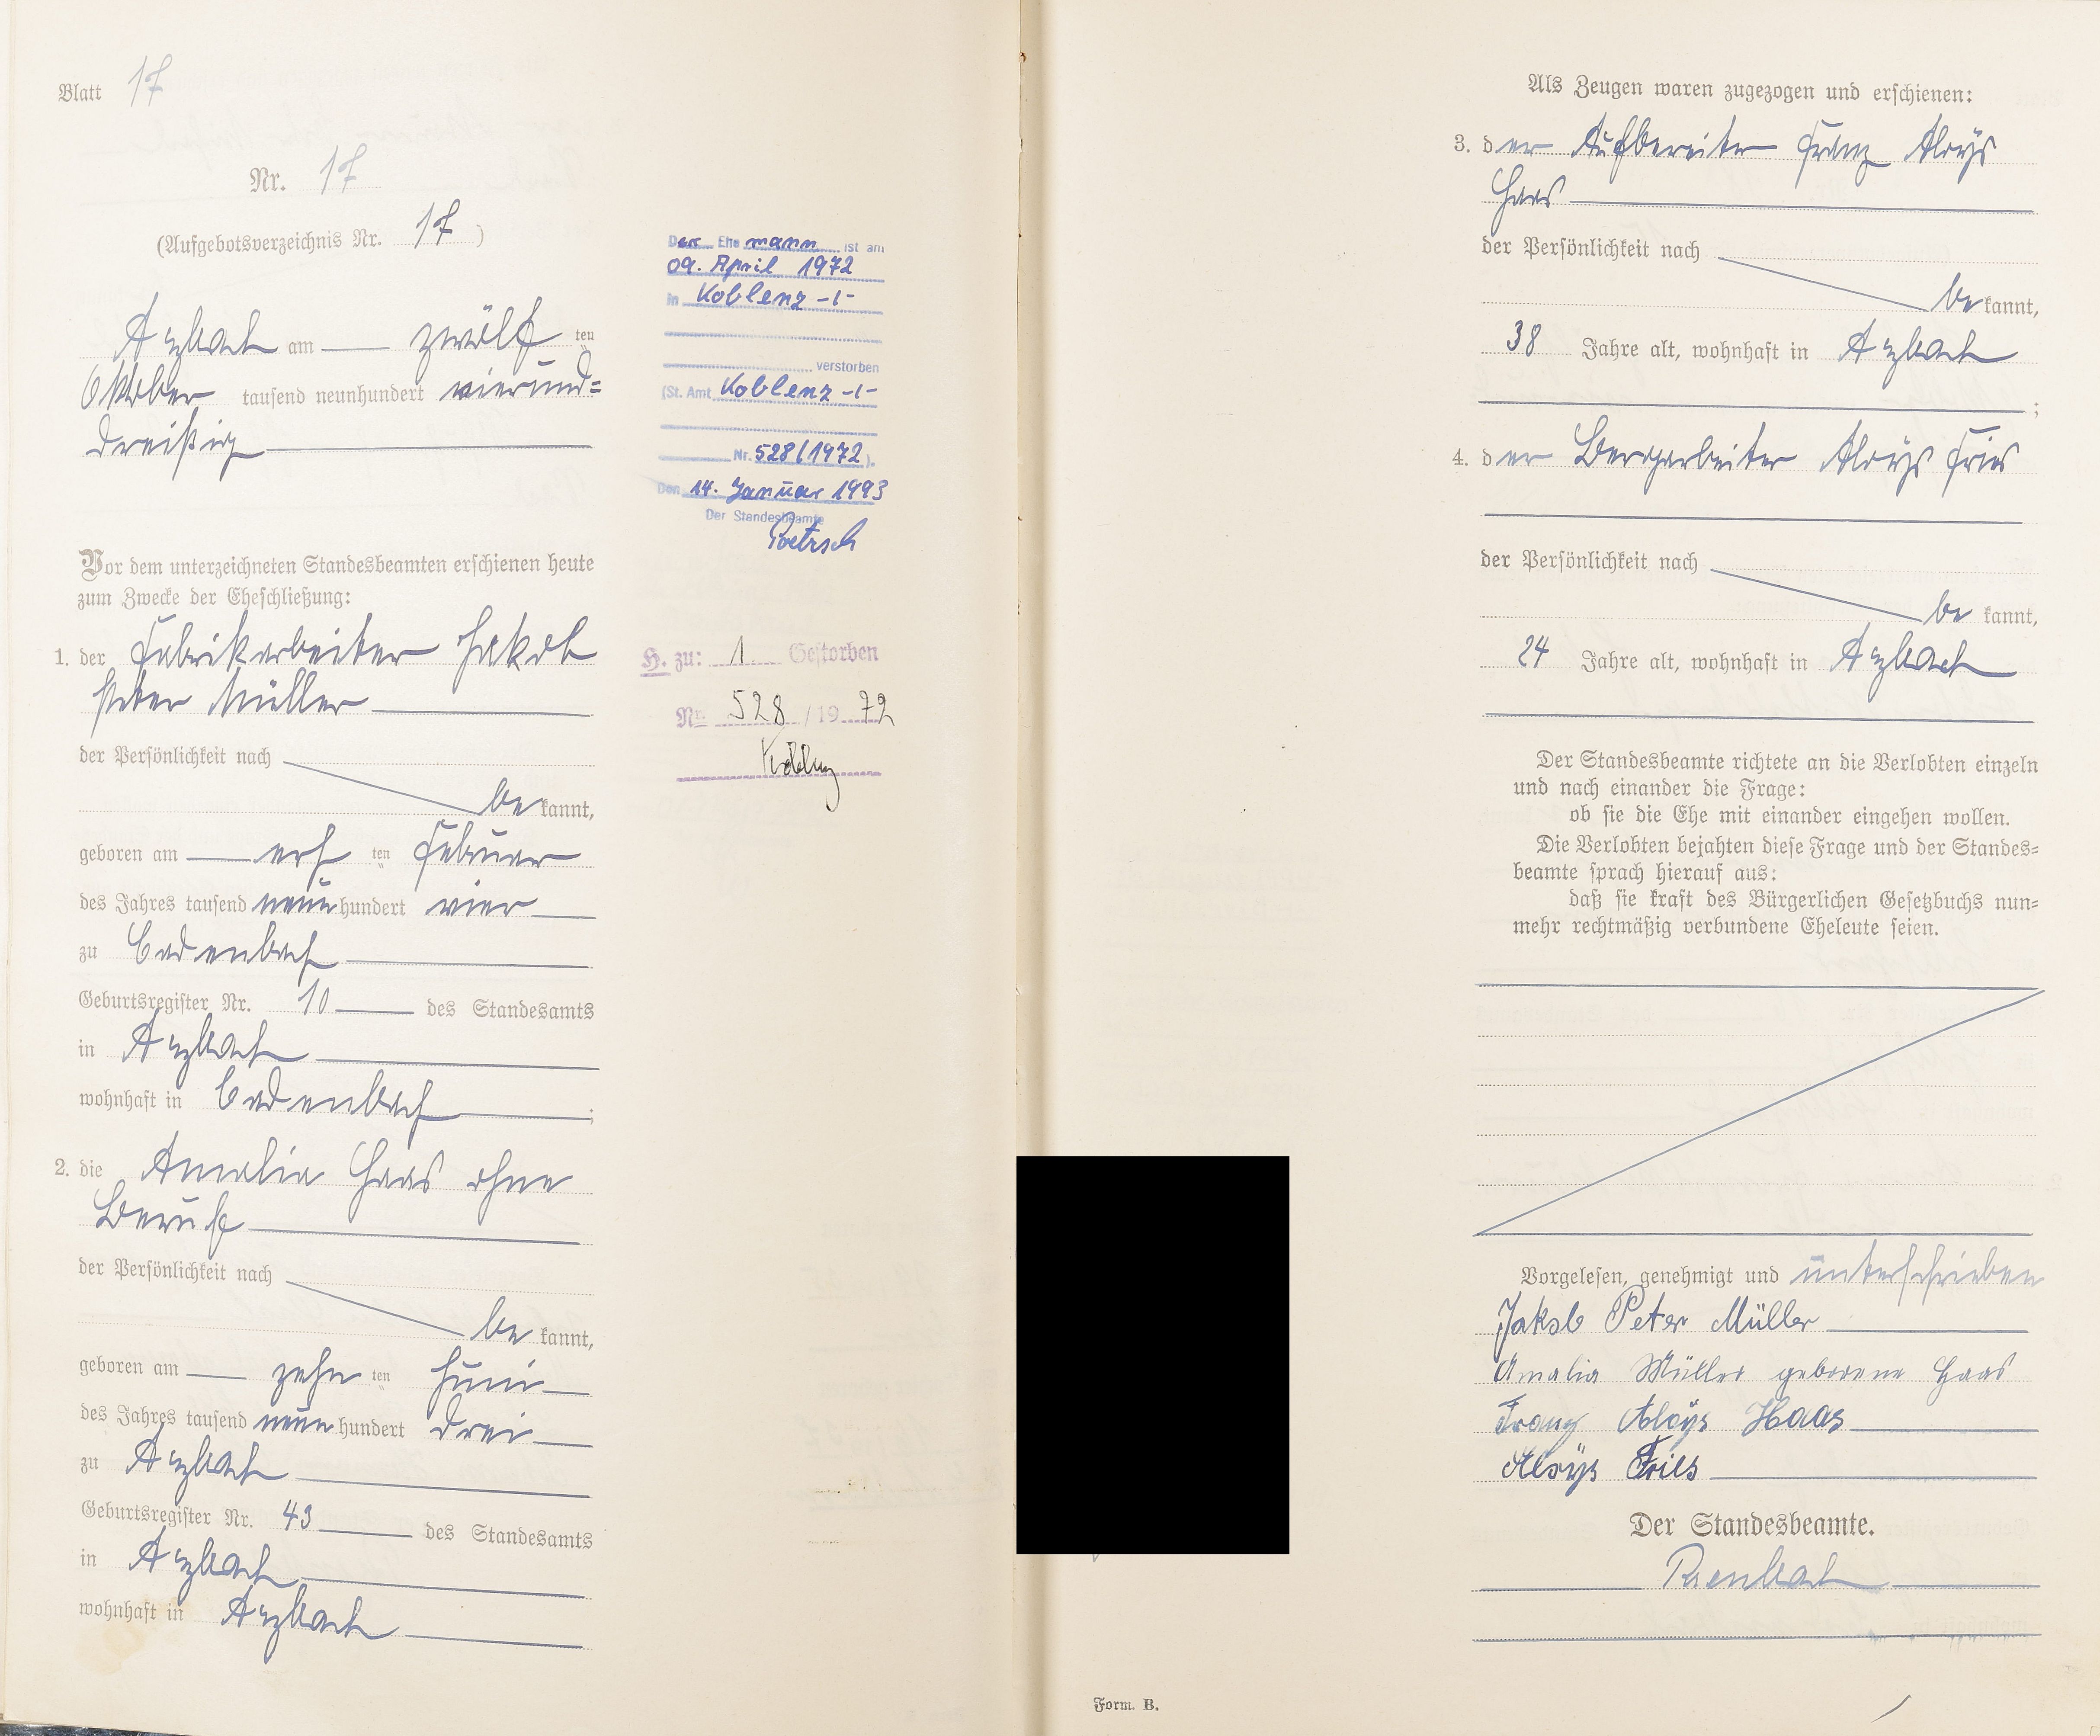 Blatt 17
Nr. 17
(Aufgebotsverzeichnis Nr. 17)
Arzbach am zwölf ten
Oktober tausend neunhundert vierund=
dreißig
Vor dem unterzeichneten Standesbeamten erschienen heute
zum Zwecke der Eheschließung:
1. der Fabrikarbeiter Jakob
Peter Müller
der Persönlichkeit nach
be kannt,
geboren am ers ten Februar
des Jahres tausend neun hundert vier
zu Cadenbach
Geburtsregister Nr. 10 des Standesamts
in Arzbach
wohnhaft in Cadenbach;
2. die Amalia Haas ohne
Beruf
der Persönlichkeit nach
be kannt,
geboren am zehn ten Juni
des Jahres tausend neun hundert drei
zu Arzbach
Geburtsregister Nr. 43 des Standesamts
in Arzbach
wohnhaft in Arzbach
Der Ehe mann ist am
09. April 1972
in Koblenz -1-
verstorben
(St. Amt Koblenz -1-
Nr. 528/1972).
Den 14. Januar 1993
Der Standesbeamte
Poetzsch
H. zu: 1 Gestorben
Nr. 528 / 19 72
Koblenz
Als Zeugen waren zugezogen und erschienen:
3. der Aufbereiter Franz Aloys
Haas
der Persönlichkeit nach
be kannt,
38 Jahre alt, wohnhaft in Arzbach
;
4. der Bergarbeiter Aloys Fries
der Persönlichkeit nach
be kannt,
24 Jahre alt, wohnhaft in Arzbach
Der Standesbeamte richtete an die Verlobten einzeln
und nach einander die Frage:
ob sie die Ehe mit einander eingehen wollen.
Die Verlobten bejahten diese Frage und der Standes=
beamte sprach hierauf aus:
daß sie kraft des Bürgerlichen Gesetzbuchs nun=
mehr rechtmäßig verbundene Eheleute seien.
Vorgelesen, genehmigt und unterschrieben
Jakob Peter Müller
Amalia Müller geborene Haas
Franz Aloys Haas
Aloys Fries
Der Standesbeamte.
Form. B.